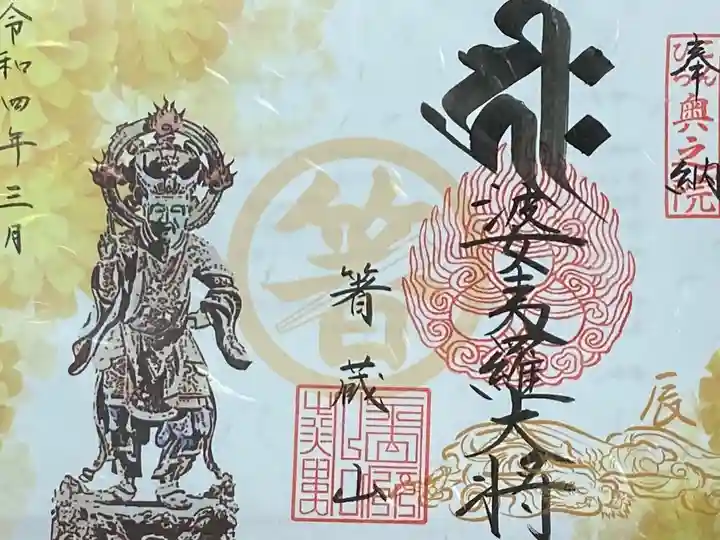 奉納
奥之院
婆夷羅大将
辰
箸蔵山
箸
令和四年三月